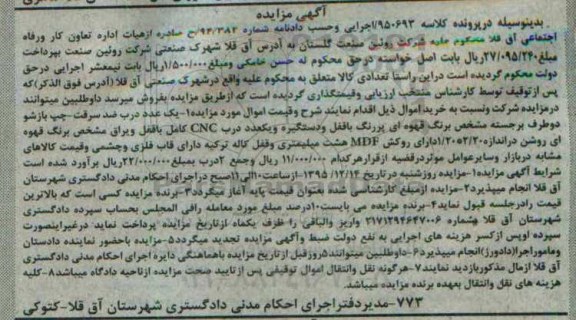 آگهی مزایده
بدینوسیله درپرونده کلاسه ۹۵۰۶۹۳/اجرایی وحسب دادنامه شماره ۹۴/۳۸۲/خ صادره ازهیات اداره تعاون کار ورفاه
اجتماعی آق قلا محکوم علیه شرکت روئین صنعت گلستان به آدرس آق قلا شهرک صنعتی شرکت روئین صنعت بپرداخت
مبلغ۲۷/۰۹۵/۲۴۰ریال بابت اصل خواسته درحق محکوم له حسن خامکی ومبلغ۱/۵۰۰/۰۰۰ریال بابت نیمعشر اجرایی درحق
دولت محکوم گردیده است دراین راستا تعدادی کالا متعلق به محکوم علیه واقع درشهرک صنعتی آق قلا (آدرس فوق الذکر)که
پس ازتوقیف توسط کارشناس منتخب ارزیابی وقیمتگذاری گردیده است که ازطریق مزایده بفروش میرسد داوطلبین میتوانند
درمزایده شرکت ونسبت به خرید اموال ذیل اقدام نمایند شرح وقیمت اموال مورد مزایده۱-یک عدد درب ضد سرقت-چپ بازشو
دوطرف برجسته مشخص برنگ قهوه ای پررنگ باقفل ودستگیره ویکعدد درب CNC کامل باقفل ویراق مشخص برنگ قهوه
ای روشن دراندازه۱/۲۰*۲/۲۰دارای روکش MDF هشت میلیمتری وقفل کاله ترکیه دارای قاب فلزی وچشمی وقیمت کالاهای
مشابه دربازار وسایرعوامل موثردرقضیه ازقرارهرکدام ۱۱/۰۰۰/۰۰۰ ریال وجمع ۲درب بمبلغ۲۲/۰۰۰/۰۰۰ریال برآورد شده است
شرایط آگهی مزایده۱-مزایده روزشنبه درتاریخ ۱۳۹۵/۱۲/۱۴ ازساعت۱۰الی۱۱صبح دراجرای احکام مدنی دادگستری شهرستان
آق قلا انجام میپذیرد۲-مزایده ازمبلغ کارشناسی شده بعنوان قیمت پایه آغاز میگردد۳-برنده مزایده کسی است که بالاترین
قیمت رادرجلسه قبول نماید۴-برنده مزایده می بایست۱۰درصد مبلغ مورد معامله رافی المجلس بحساب سپرده دادگستری
شهرستان آق قلا بشماره ۲۱۷۱۲۹۴۶۴۷۰۰۶ واریز والباقی را ظرف یکماه ازتاریخ مزایده پرداخت نماید درغیراینصورت
سپرده اوپس ازکسر هزینه های اجرایی به نفع دولت ضبط وآگهی مزایده تجدید میگردد۵-مزایده باحضور نماینده دادستان
وماموراجرا(دادورز)انجام میپذیرد۶-داوطلبین میتوانند۵روزقبل ازتاریخ مزایده باهماهنگی دایره اجرای احکام مدنی دادگستری
آق قلا ازمال مذکوربازدید نمایند۷-هرگونه نقل وانتقال اموال توقیفی پس ازتایید صحت مزایده ازناحیه دادگاه میباشد۸-کلیه
هزینه های نقل وانتقال بعهده برنده مزایده میباشد.
۷۷۳-مدیردفتراجرای احکام مدنی دادگستری شهرستان آق قلا-کتوکی